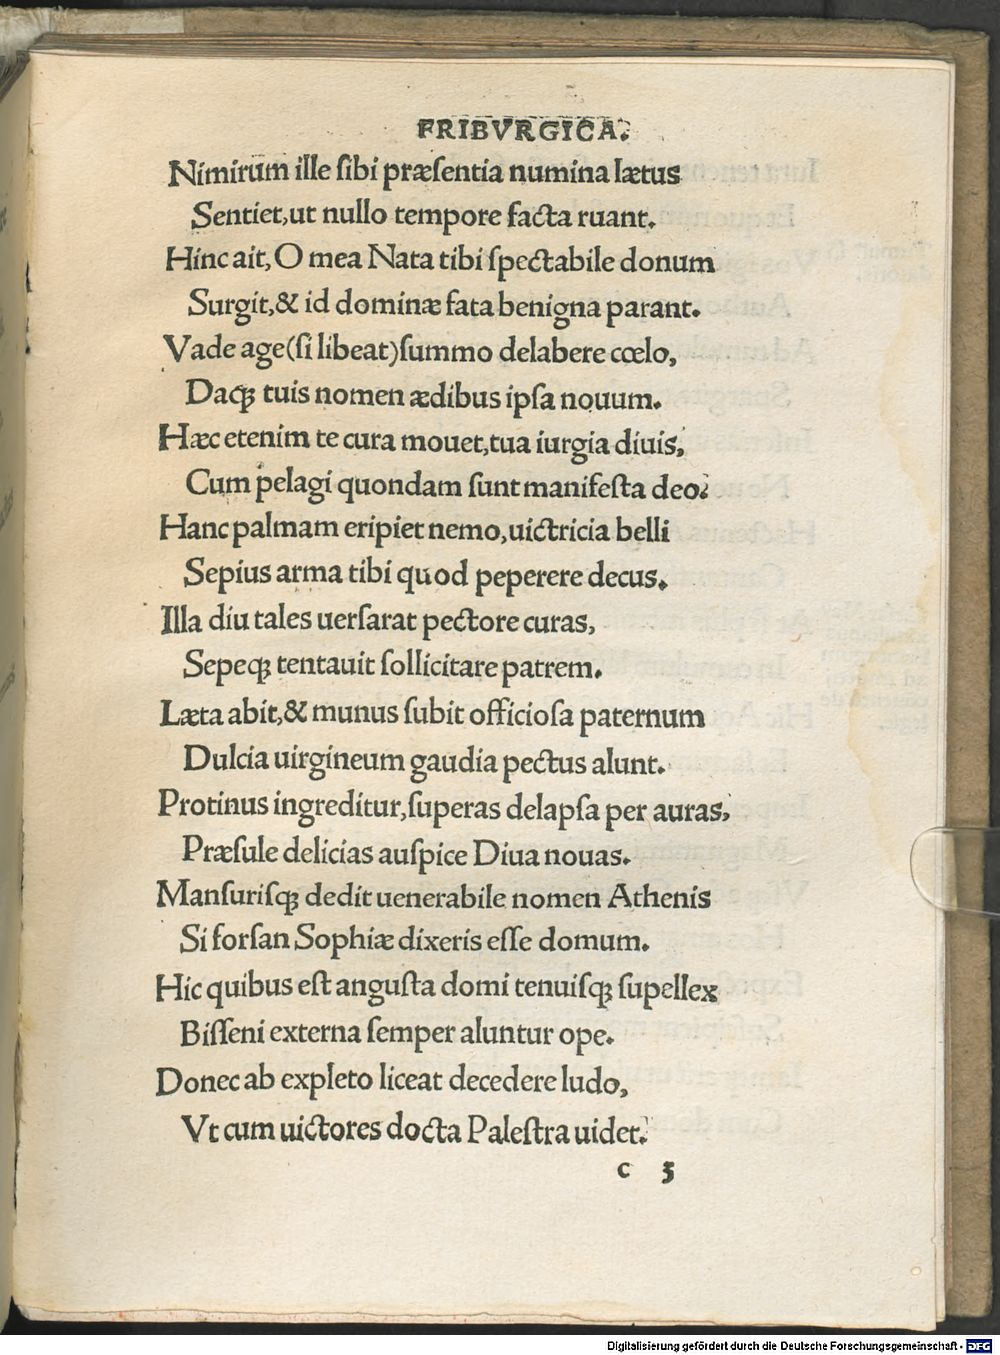 FRIBVRGICA.
Nimirum ille ſibi præſentia numina lætus
Sentiet,ut nullo tempore facta ruant.
Hinc ait, O mea Nata tibi ſpectabile donum
Surgit,& id dominæ fata benigna parant.
Vade age(ſi libeat)ſummo delabere cœlo,
Daqꝫ tuis nomen ædibus ipſa nouum.
Hæc etenim te cura mouet,tua iurgia diuis,
Cum pelagi quondam ſunt manifeſta deo.
Hanc palmam eripiet nemo,uictricia belli
Sepius arma tibi quod peperere decus.
Illa diu tales uerſarat pectore curas,
Sepeqꝫ tentauit ſollicitare patrem.
Læta abit,& munus ſubit officioſa paternum
Dulcia uirgineum gaudia pectus alunt.
Protinus ingreditur,ſuperas delapſa per auras,
Præſule delicias auſpice Diua nouas.
Manſuriſqꝫ dedit uenerabile nomen Athenis
Si forſan Sophiæ dixeris eſſe domum.
Hic quibus eſt anguſta domi tenuiſqꝫ ſupellex
Biſſeni externa ſemper aluntur ope.
Donec ab expleto liceat decedere ludo,
Vt cum uictores docta Paleſtra uidet.
c 3
Digitalisierung gefördert durch die Deutsche Forschungsgemeinschaft - DFG